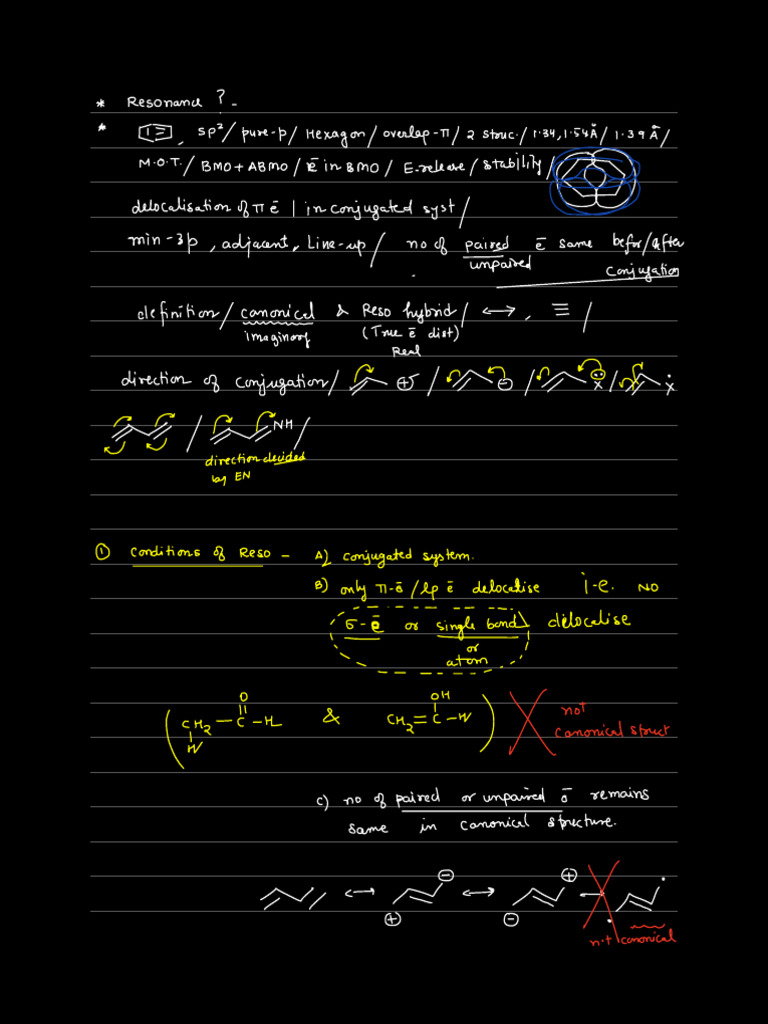 * Resonance ? -
* , sp²/ pure-p/ Hexagon/ overlap-π/ 2 struc./ 1.34, 1.54Å/ 1.39 Å/
M.O.T./ BMO + ABMO/ ē in BMO/ E-release/ stability/
delocalisation of π ē | in conjugated syst/
min-3p, adjacant, Line-up/ no of paired ē same befor/after
unpaired conjugation
definition/ canonical & Reso hybrid/ ⟷, ≡ /
imaginary (True ē dist)
Real
direction of conjugation/ ⊕ / ⊖ / x / x
/ NH/
direction decided
by EN
① Conditions of Reso - A) conjugated system.
B) only π-ē/ lp ē delocalise i.e. NO
σ-ē or single bond delocalise
or
atom
O OH
CH₂ - C - H & CH₂ = C - H not
H canonical struct
c) no of paired or unpaired ē remains
same in canonical structure.
⟷ ⊖ ⟷ ⊕
⊕ ⊖
not canonical